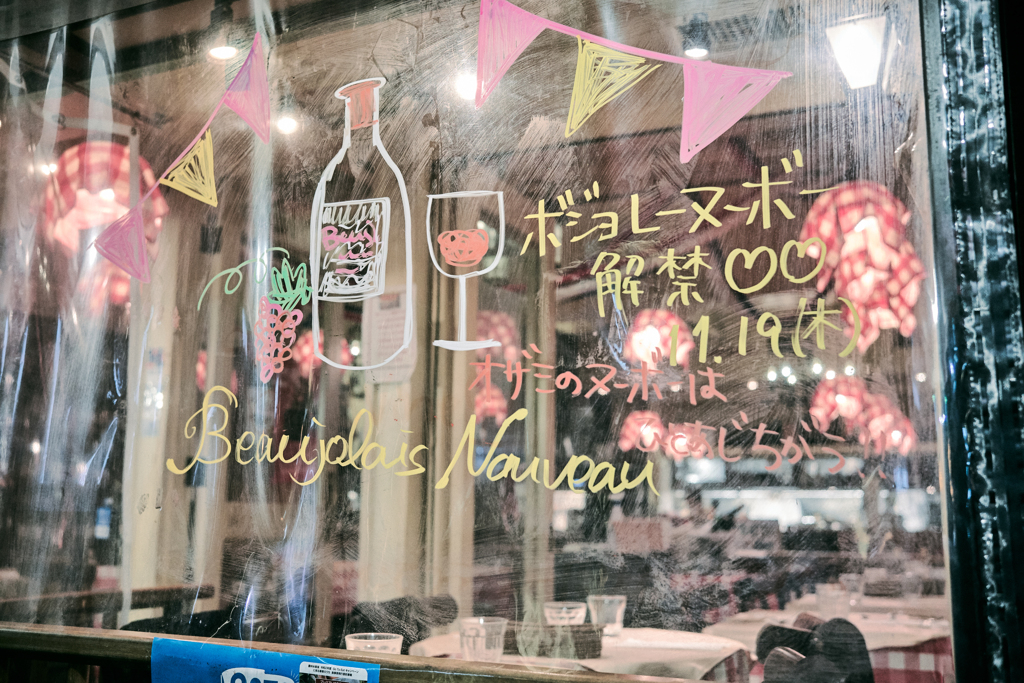 ボジョレーヌーボー
解禁♡♡
11.19(木)
オザミのヌーボーは
あじちがう
Beaujolais Nouveau